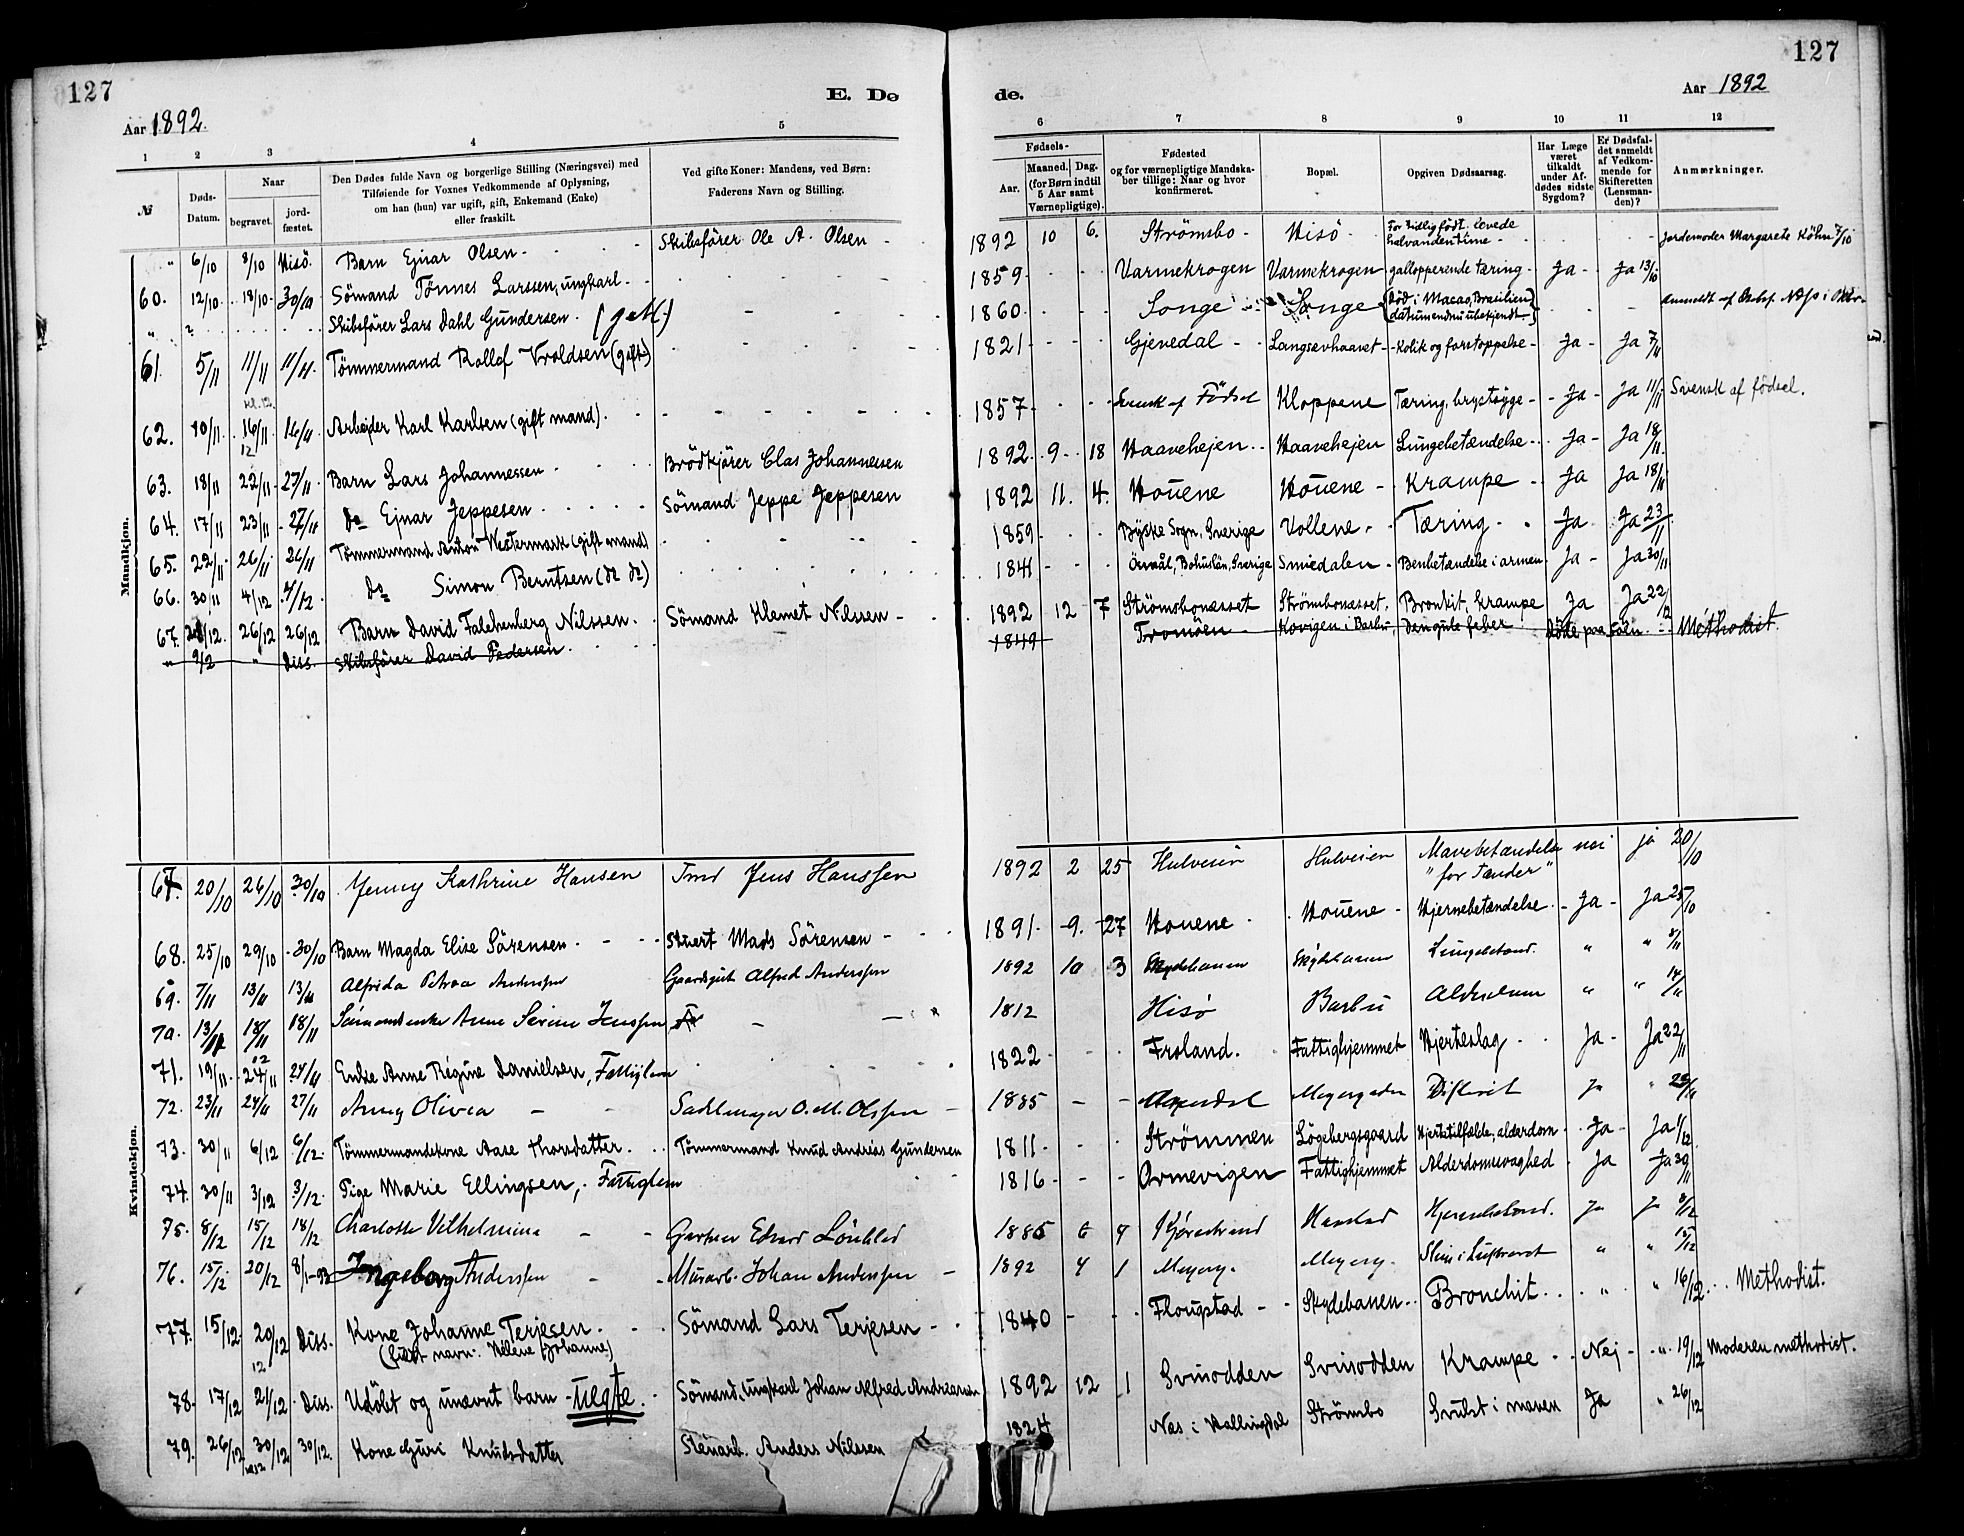 127
127
E. Dø
de.
Aar 1892.
Aar 1892
1 2 3 4 5 6 7 8 9 10 11 12
№
Døds-Datum.
Naar
begravet.
jord-fæstet.
Den Dødes fulde Navn og borgerlige Stilling (Næringsvei) med
Tilføiende for Voxnes Vedkommende af Oplysning,
om han (hun) var ugift, gift, Enkemand (Enke)
eller fraskilt.
Ved gifte Koner: Mandens, ved Børn:
Faderens Navn og Stilling.
Fødsels-
Aar.
Maaned. Dag.
(for Børn indtil
5 Aar samt
Værnepligtige).
Fødested
og for værnepligtige Mandska-
ber tillige: Naar og hvor
konfirmeret.
Bopæl.
Opgiven Dødsaarsag.
Har Læge
været
tilkaldt
under Af-
dødes sidste
Sygdom?
Er Dødsfal-
det anmeldt
af Vedkom-
mende for
Skifteretten
(Lensman-
den)?
Anmærkninger.
Mandkjøn.
" 6/10 8/10 Hisö. Barn Ejnar Olsen Skibsförer Ole A. Olsen 1892 10 6. Strömsbo Hisö For tidlig födt. Levede halvanden time Jordemoder Margarete Köhn 7/10
60. 12/10 18/10 30/10 Sömand Tönnes Larssen, ungkarl 1859 Varmekrogen Varmekrogen gallopperende tæring Ja Ja 13/10
" ? Skibsförer Lars Dahl Gundersen. (gift) 1860 Songe Songe (Död i Macao, Brasilien, datum endnu ubekjendt.)
61. 5/11 11/11 11/11 Tömmermand Rollef Vroldsen (gift) 1821 Gjenedal Langsævhaavet Kolik og forstoppelse Ja Ja 7/11
62. 10/11 kl. 12. 16/11 16/11 Arbejder Karl Karlsen (gift mand) 1857 Svensk af Födsel Kloppene Tæring, brystsyge Ja Ja 11/11 Svensk af födsel.
63. 18/11 22/11 27/11 Barn Lars Johannessen Brödkjörer Clas Johannessen 1892 9 18 Haavehejen Haavehejen Lungebetændelse Ja Ja 18/11
64. 17/11 23/11 27/11 do Ejnar Jeppesen Sömand Jeppe Jeppesen 1892 11. 4. Houene Houene Krampe Ja Ja 18/11
65. 22/11 26/11 26/11 Tömmermand Anton Westermark (gift mand) 1859 Byske Sogn, Sverige Vollene Tæring Ja Ja 23/11
66. 30/11 4/12 4/12 do Simon Berntsen (do do) 1841 Bohuslän, Sverige Smiedalen Benbetændelse i armen Ja Ja 30/11
67. 21/12. 26/12 26/12 Barn David Falchenberg Nilssen Sömand Klemet Nilssen 1892 12 7 Strömsbonæsset Strömsbonæsset, Bronkit, krampe Ja Ja 22/12
" 9/2 " Diss. Skibsförer David Pedersen. 1849 Tromöen Kovigen i Barbu, Den gule feber Döde paa Methodist.
Kvindekjøn.
67. 20/10 26/10 30/10 Jenny Kathrine Hansen Tmd Jens Hanssen 1892 2 25 Hulveien Hulveien Mavebetændelse "for Tænder" nei ja 20/10
68. 25/10 29/10 30/10 Barn Magda Elise Sörensen Stuert Mads Sörensen 1891 9. 27 Houene Houene Hjernebetændelse Ja Ja 25/10
69. 7/11 13/11 13/11 Alfrida Petrea Anderssen Gaardsgut Alfred Anderssen 1892 10 3 Skydebanen Skydebanen Lungebetænd. " " 8/11
70. 13/11 18/11 18/11 Sömandsenke Anne Serine Jenssen 1812 Hisø Barbu Alderdom " " 14/11
71. 19/11 12 24/11 27/11 Enke Anne Regine Danielsen, Fattiglem 1822 Froland. Fattighjemmet Hjerteslag Ja Ja 22/11
72. 23/11 24/11 27/11 Anny Olivia Sadelmager O. M. Olssen 1885 Difterit Ja "
73. 30/11 6/12 6/12. Tömmermandskone Aase Thorsdatter Tömmermand Knud Andreas Gundersen 1811 Strömmen Lögebergsgaard Hjertetilfælde, alderdom Ja Ja 1/12
74. 30/11 3/12 3/12. Pige Marie Ellingsen, Fattiglem 1816 Arnevigen Fattighjemmet Alderdomssvaghed Ja Ja 30/11
75. 8/12 15/12 18/12 Charlotte Vilhelmine Gartner Edvard Lönblad 1885 6 Hjernebetænd. Ja Ja 8/12
76. 15/12 20/12 8/1-93 Ingeborg Anderssen Murarb. Johan Anderssen 1892 4 1 Myreng. Myreng. " " 15/12
77. 15/12 20/12 Diss. Kone Johanne Terjesen. Sömand Lars Terjesen 1840 Flougstad Skydebanen Bronchit " " 16/12 Methodist.
navn: Helene Johanne)
78. 17/12 12 21/12 Diss. Udöbt og unævnt barn - uegte. Sömand, ungkarl Johan Alfred Andreasen 1892 12 1 Svinodden Svinodden Krampe Nej " 19/12 Moderen methodist.
79. 26/12 30/12 30/12. Kone Guri Knudsdatter Stenarb. Anders Nilssen 1824 Næs i Hallingdal Strömbo Svulst i maven Ja " 26/12